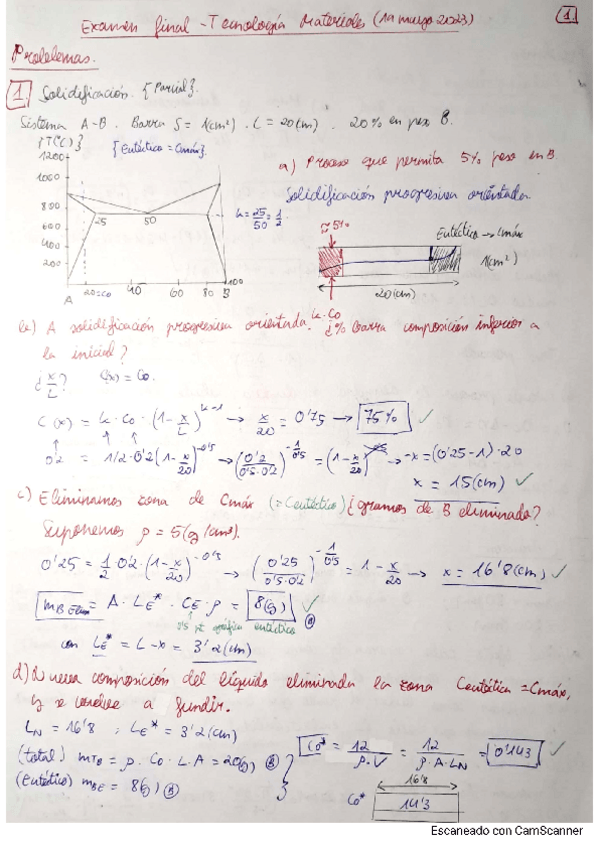 Examen final - Tecnología Materiales (1 marzo 2023)
1.
Problemas.
1. Solidificación. {Parcial}.
Sistema A-B. Barra S = 1(cm²). L = 20(cm). 20% en peso B.
{T(ºC)} {Eutéctico = Cmáx}.
1200
1000
800
600
400
200
25 50
A 20=Co 40 60 80 B 100
k = 25/50 = 1/2
a) Proceso que permita 5% peso en B.
Solidificación progresiva orientada
≈5% Eutéctico → Cmáx
1(cm²)
20(cm)
k·Co
b) A solidificación progresiva orientada. ¿% barra composición inferior a
la inicial?
¿x/L? C(x) = Co.
C(x) = k·Co·(1-x/L)^(k-1) → x/20 = 0'75 → 75% ✓
0'2 = 1/2·0'2(1-x/20)^(-0'5) → (0'2/0'5·0'2)^(-1/0'5) = (1-x/20) → -x = (0'25-1)·20
x = 15(cm) ✓
c) Eliminamos zona de Cmáx (=Ceutéctico) ¿gramos de B eliminado?
Suponemos ρ = 5(g/cm³).
0'25 = 1/2·0'2·(1-x/20)^(-0'5) → (0'25/0'5·0'2)^(-1/0'5) = 1-x/20 → x = 16'8(cm) ✓
mB Elim = A·LE*·CE·ρ = 8(g) ✓ B
0'5 gráfica eutéctico
con LE* = L-x = 3'2(cm)
d) Nueva composición del líquido eliminada la zona Ceutéctica = Cmáx,
y se vuelve a fundir.
LN = 16'8 ; LE* = 3'2(cm)
(total) mTB = ρ·Co·L·A = 20(g) B
(Eutéctico) mBE = 8(g) B
Co* = 12/ρ·V = 12/ρ·A·LN = 0'143 ✓
16'8
Co* 14'3
Escaneado con CamScanner